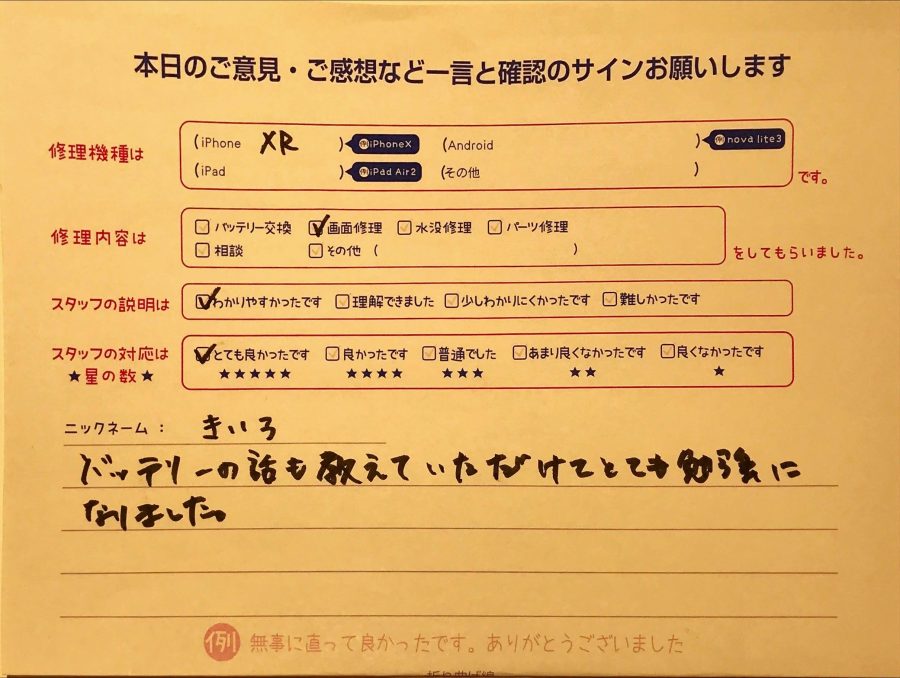 本日のご意見・ご感想など一言と確認のサインお願いします
修理機種は (iPhone XR ) 例iPhoneX (Android ) 例nova lite3
(iPad ) 例iPad Air2 (その他 ) です。
修理内容は □バッテリー交換 ☑画面修理 □水没修理 □パーツ修理
□相談 □その他 ( ) をしてもらいました。
スタッフの説明は ☑わかりやすかったです □理解できました □少しわかりにくかったです □難しかったです
スタッフの対応は ☑とても良かったです □良かったです □普通でした □あまり良くなかったです □良くなかったです
★星の数★ ★★★★★ ★★★★ ★★★ ★★ ★
ニックネーム: きいろ
バッテリーの話も教えていただけてとても勉強に
なりました。
例 無事に直って良かったです。ありがとうございました